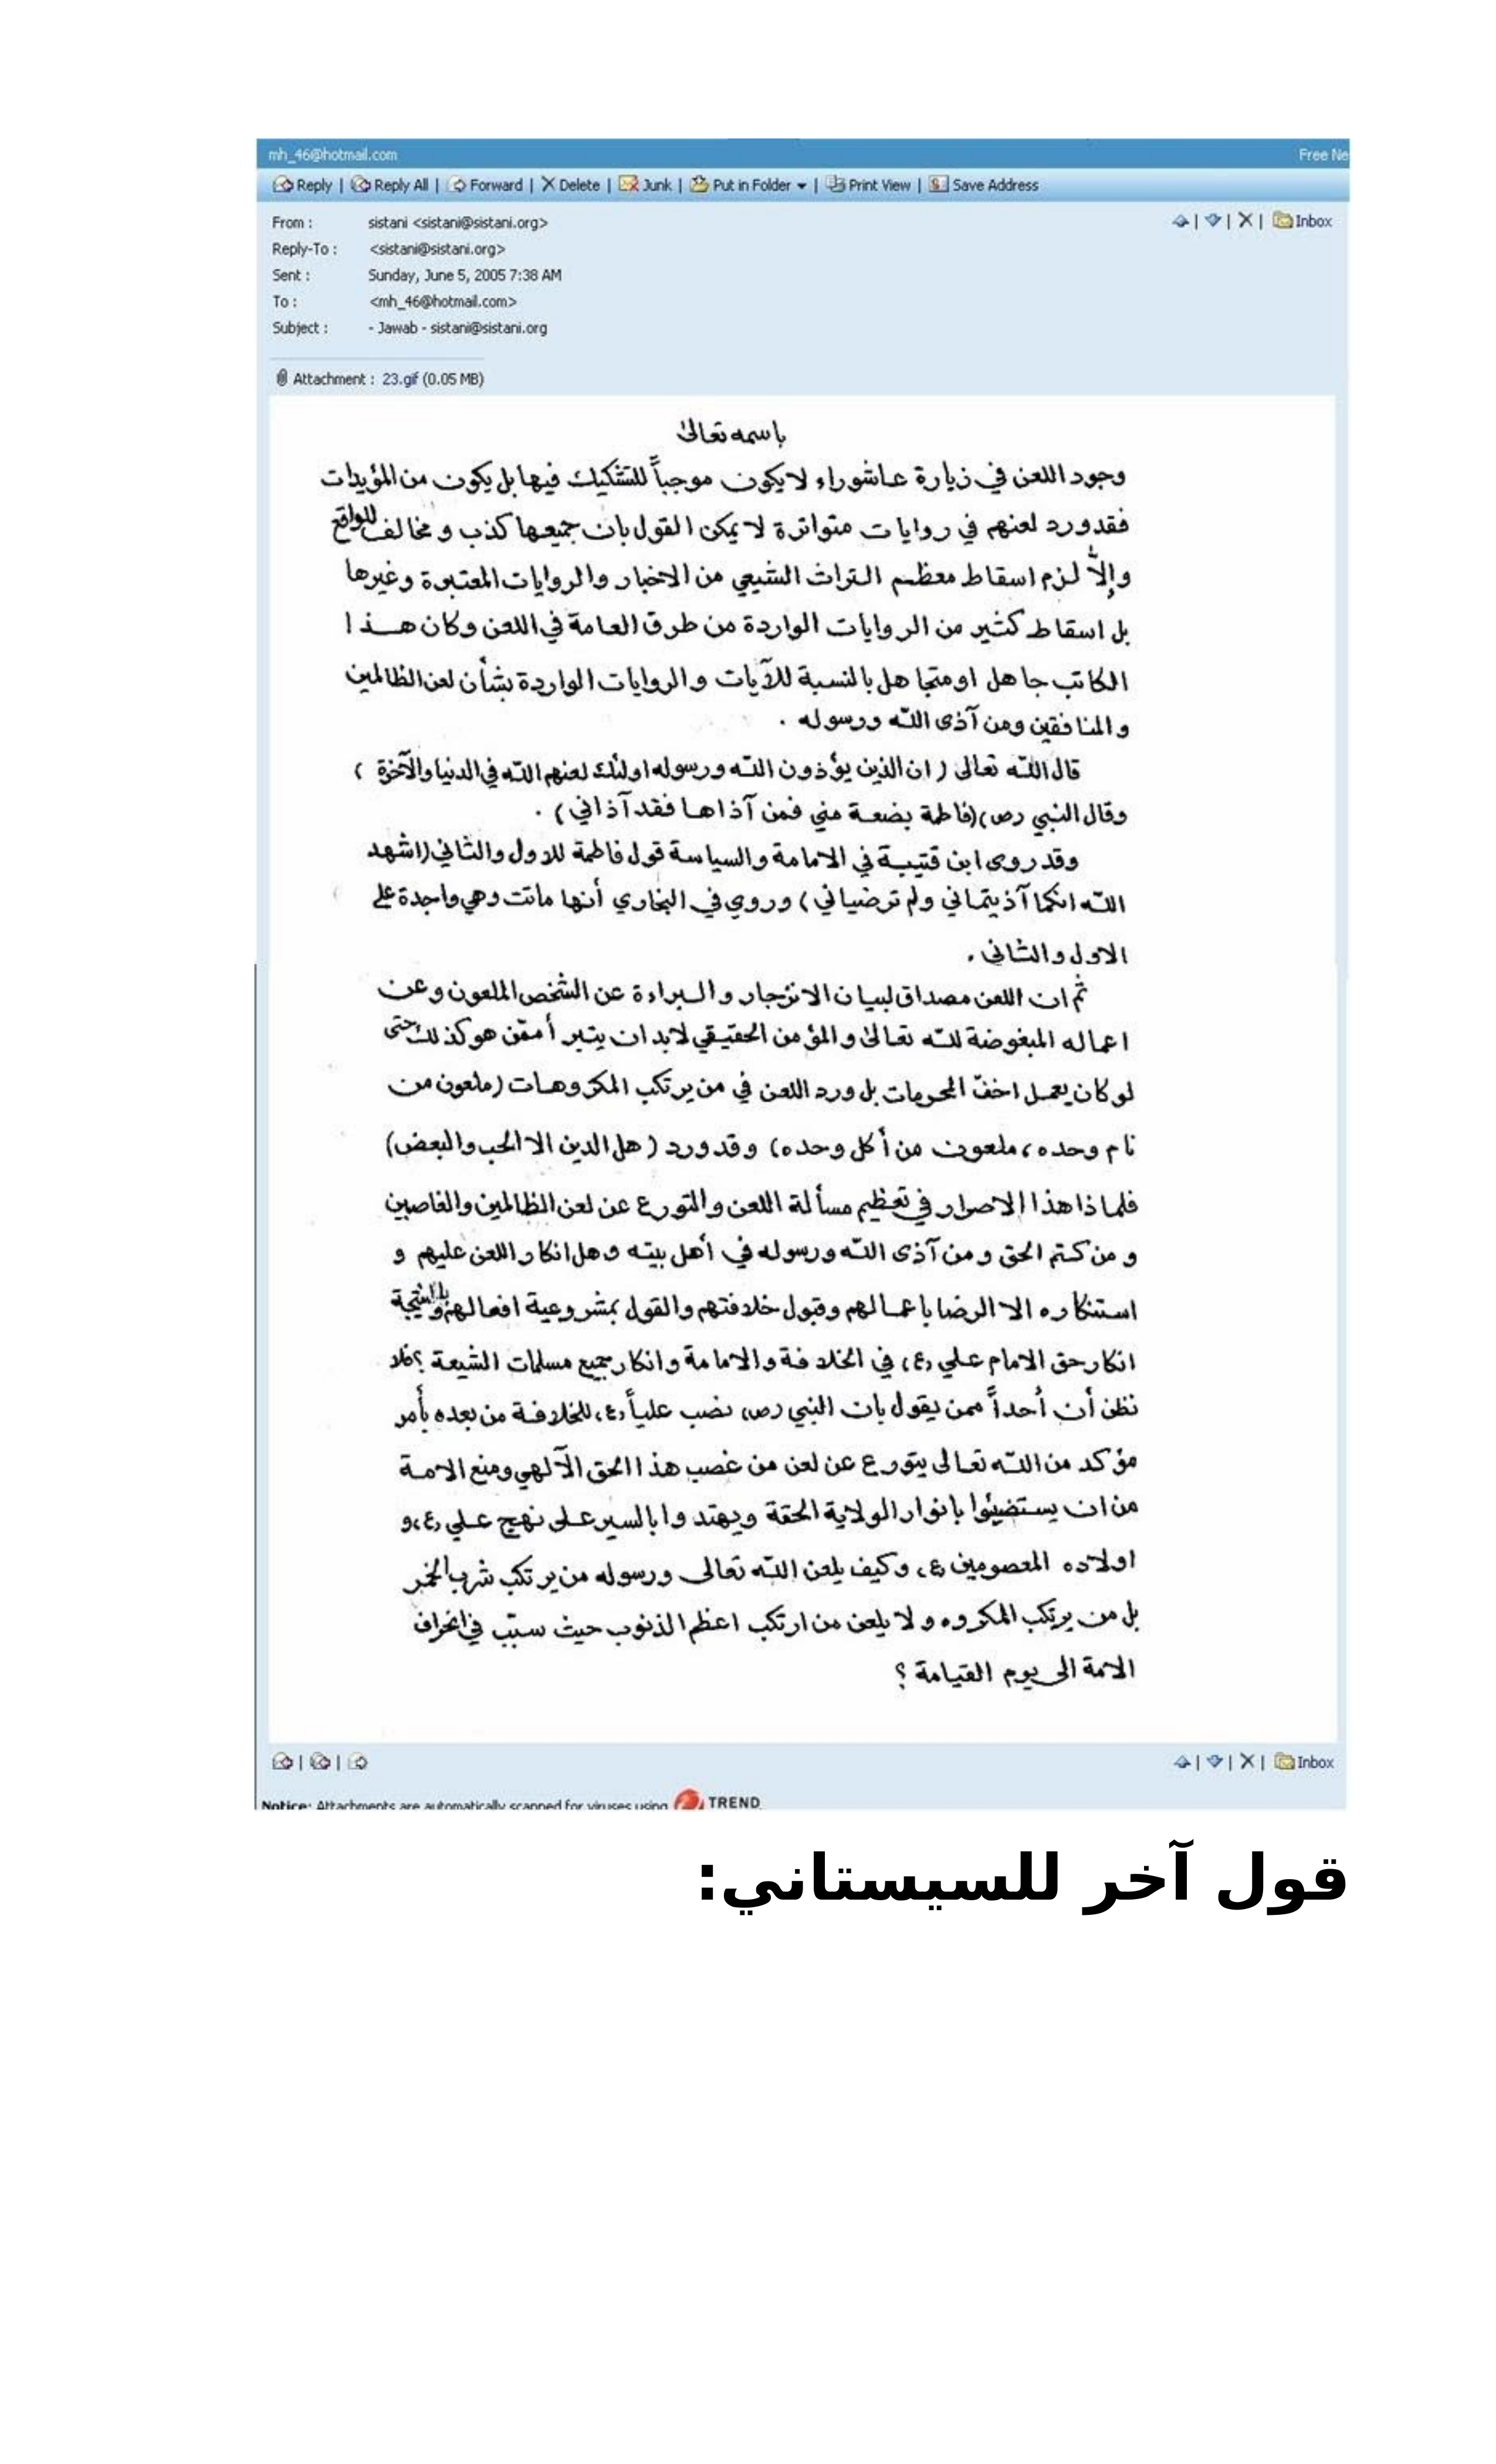 mh_46@hotmail.com Free Ne
Reply | Reply All | Forward | Delete | Junk | Put in Folder | Print View | Save Address
From : sistani <sistani@sistani.org> | | | Inbox
Reply-To : <sistani@sistani.org>
Sent : Sunday, June 5, 2005 7:38 AM
To : <mh_46@hotmail.com>
Subject : - Jawab - sistani@sistani.org
Attachment : 23.gif (0.05 MB)
باسمه تعالى
وجود اللعن في زيارة عاشوراء لايكون موجباً للتشكيك فيها بل يكون من المؤيدات
فقد ورد لعنهم في روايات متواترة لا يمكن القول بان جميعها كذب و مخالف للواقع
وإلاّ لزم اسقاط معظم التراث الشيعي من الاخبار والروايات المعتبرة وغيرها
بل اسقاط كثير من الروايات الواردة من طرق العامة في اللعن وكان هـذا
الكاتب جاهل او متجاهل بالنسبة للآيات والروايات الواردة بشأن لعن الظالمين
والمنافقين ومن آذى اللّه ورسوله .
قال اللّه تعالى ( ان الذين يؤذون اللّه ورسوله اولئك لعنهم اللّه في الدنيا والآخرة )
وقال النبي (ص) (فاطمة بضعة مني فمن آذاها فقد آذاني) .
وقد روى ابن قتيبة في الامامة والسياسة قول فاطمة للاول والثاني (اشهد
اللّه انكما آذيتماني ولم ترضياني ) وروي في البخاري أنها ماتت وهي واجدة على
الاول والثاني .
ثم ان اللعن مصداق لبيان الانزجار والبراءة عن الشخص الملعون وعن
اعماله المبغوضة للّه تعالى والمؤمن الحقيقي لابد ان يتبرأ ممّن هو كذلك حتى
لو كان يعمل اخفّ المحرمات بل ورد اللعن في من يرتكب المكروهات (ملعون من
نام وحده ، ملعون من أكل وحده) وقد ورد ( هل الدين الا الحب والبغض)
فلماذا هذا الاصرار في تعظيم مسألة اللعن والتورع عن لعن الظالمين والغاصبين
و من كتم الحق و من آذى اللّه ورسوله في أهل بيته و هل انكار اللعن عليهم و
استنكاره الا الرضا باعمالهم وقبول خلافتهم والقول بمشروعية افعالهم وبالنتيجة
انكار حق الامام علي (ع) في الخلافة والامامة وانكار جميع مسلمات الشيعة ؟ فلا
نظن أن أحداً ممن يقول بان النبي (ص) نصب علياً (ع) للخلافة من بعده بأمر
مؤكد من اللّه تعالى يتورع عن لعن من غصب هذا الحق الآلهي ومنع الامة
من ان يستضيئوا بانوار الولاية الحقة ويهتدوا بالسير على نهج علي (ع) و
اولاده المعصومين (ع) وكيف يلعن اللّه تعالى ورسوله من يرتكب شرب الخمر
بل من يرتكب المكروه و لا يلعن من ارتكب اعظم الذنوب حيث سبّب في انحراف
الامة الى يوم القيامة ؟
| | | | | Inbox
Notice: Attachments are automatically scanned for viruses using TREND
قول آخر للسيستاني: